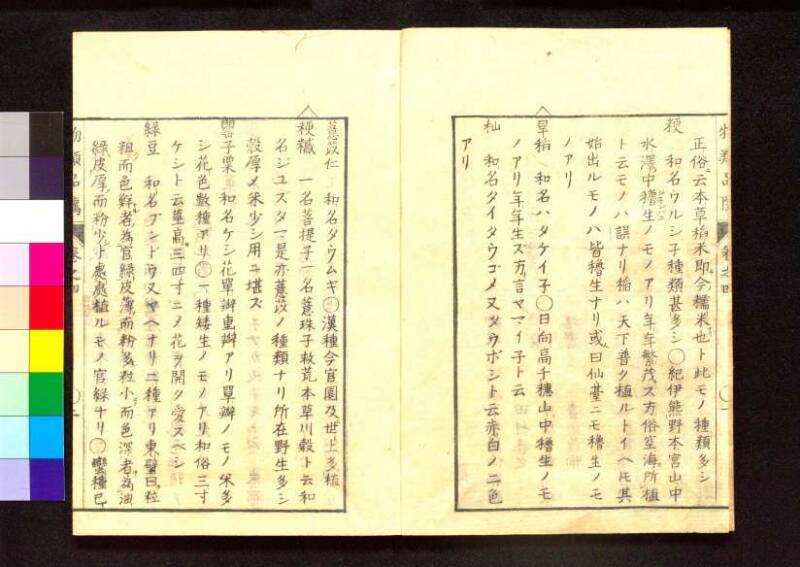 正俗ニ云本草稻米即今糯米也ト此モノ種類多シ
粳 和名ウルシ子種類甚多シ〇紀伊熊野本宮山中
水澤中穭生ノモノアリ年年繁茂ス方俗空海ノ所植
ト云モノハ誤ナリ稲ハ天下普ク植ルトイヘトモ其
始出ルモノハ皆穭生ナリ或ハ曰仙臺ニモ穭生ノモ
ノアリ
旱稲 和名ハタケイ子〇日向高千穗山中穭生ノモ
ノアリ年年生ス方言ママイ子ト云
秈 和名タイタウゴメ又タウボシト云赤白ノ二色
アリ
薏苡仁 和名タウムギ〇漢種今官園及世上多植
粳䊬 一名菩提子一名薏珠子救荒本草川穀ト云和
名ジユスダマ是亦薏苡ノ種類ナリ所在野生多シ
殼厚メ米少シ用ニ堪ズ
罌子粟 和名ケシ花單瓣重瓣アリ單瓣ノモノ米多
シ花色數種アリ〇一種矮生ノモノアリ和俗三寸
ケシト云莖高三四寸ニメ花ヲ開ク愛スベシ
緑豆 和名ブンドウ又マヘナリ二種アリ東璧曰粒
粗而色鮮者為官緑皮薄而粉多粒小而色深者為油
緑皮厚而粉少ト處處植ルモノ官緑ナリ〇蠻種已
物類品隲 巻之四 〇二